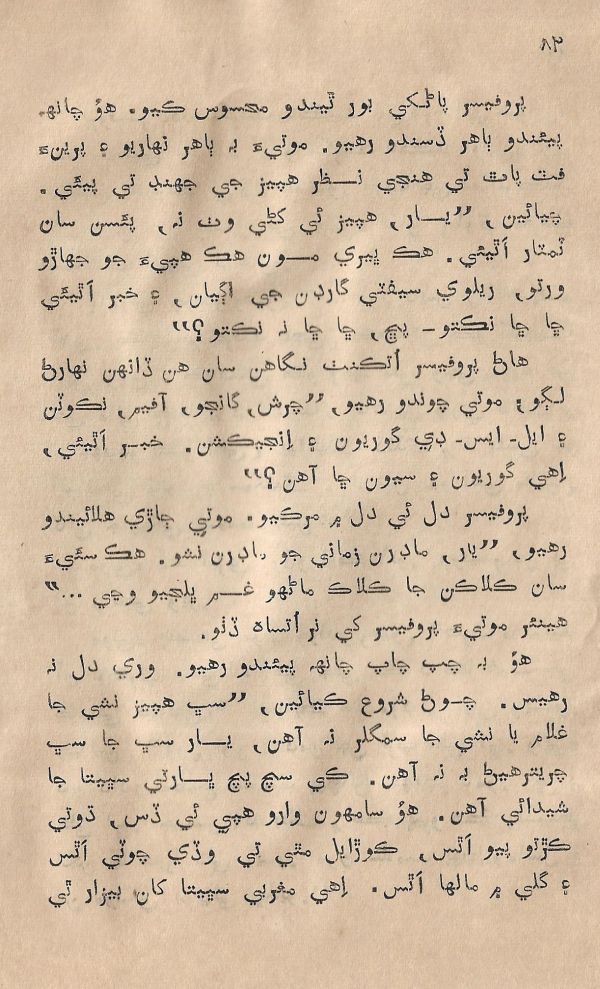 ۸۳
پروفيسر پاڻکي بور ٿيندو محسوس ڪيو. هوُ چانهہ
پيئندو ٻاهر ڏسندو رهيو. موتيءَ بہ ٻاهر نهاريو ۽ پرينءَ
فٽ پاٿ تي هنجي نـظر هپيز جي جهنڊ تي پيئي.
چيائين, ”يـار, هپيز ئي کڻي وٺ نہ, پئسن سان
ٽمٽار اَٿيئي. هڪ ڀيري مـون هڪ هپيءَ جو جهاڙو
ورتو, ريلوي سيفٽي گارڊن جي اڳيان, ۽ خبر اَٿيئي
ڇا ڇا نڪتو۔ پڇ, ڇا ڇا نہ نڪتو؟“
هاڻ پروفيسر اُتڪنٺ نگاهن سان هن ڏانهن نهارڻ
لڳو؛ موتي چوندو رهيو, ”چرش, گانجو, آفيم, نڪوٽن
۽ ايل۔ ايس۔ ڊي گوريون ۽ اِنجيڪشن. خبـر اَٿيئي,
اِهي گوريون ۽ سيون ڇا آهن؟“
پروفيسر دل ئي دل ۾ مرڪيو. موتي ڄاڙي هلائيندو
رهيو, ”يار, ماڊرن زماني جو ماڊرن نشو. هڪ سئيءَ
سان ڪلاڪن جا ڪلاڪ ماڻهو غـم ڀلجيو وڃي ...“
هينئر موتيءَ پروفيسر کي نراُتساه ڏنو.
هوُ بہ چپ چاپ چانهہ پيئندو رهيو. وري دل نہ
رهيس. چـوڻ شروع ڪيائين, ”سڀ هپيز نشي جا
غلام يا نشي جا سمگلر نہ آهن, يـار سڀ جا سڀ
چريترهيڻ بہ نہ آهن. ڪي سچ پچ ڀـارتي سڀيتا جا
شيدائي آهن. هوُ سامهون وارو هپي ئي ڏس, ڌوتي
ڪڙتو پيو اَٿس, ڪوڙايل مٿي تي وڏي چوٽي اَٿس
۽ گلي ۾ مالها اَٿس. اِهي مغربي سڀيتا کان بيزار ٿي